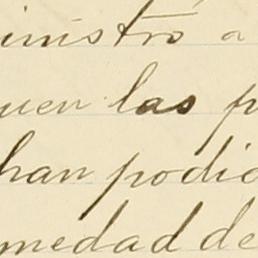 inistró a
uen las p
han podid
medad de